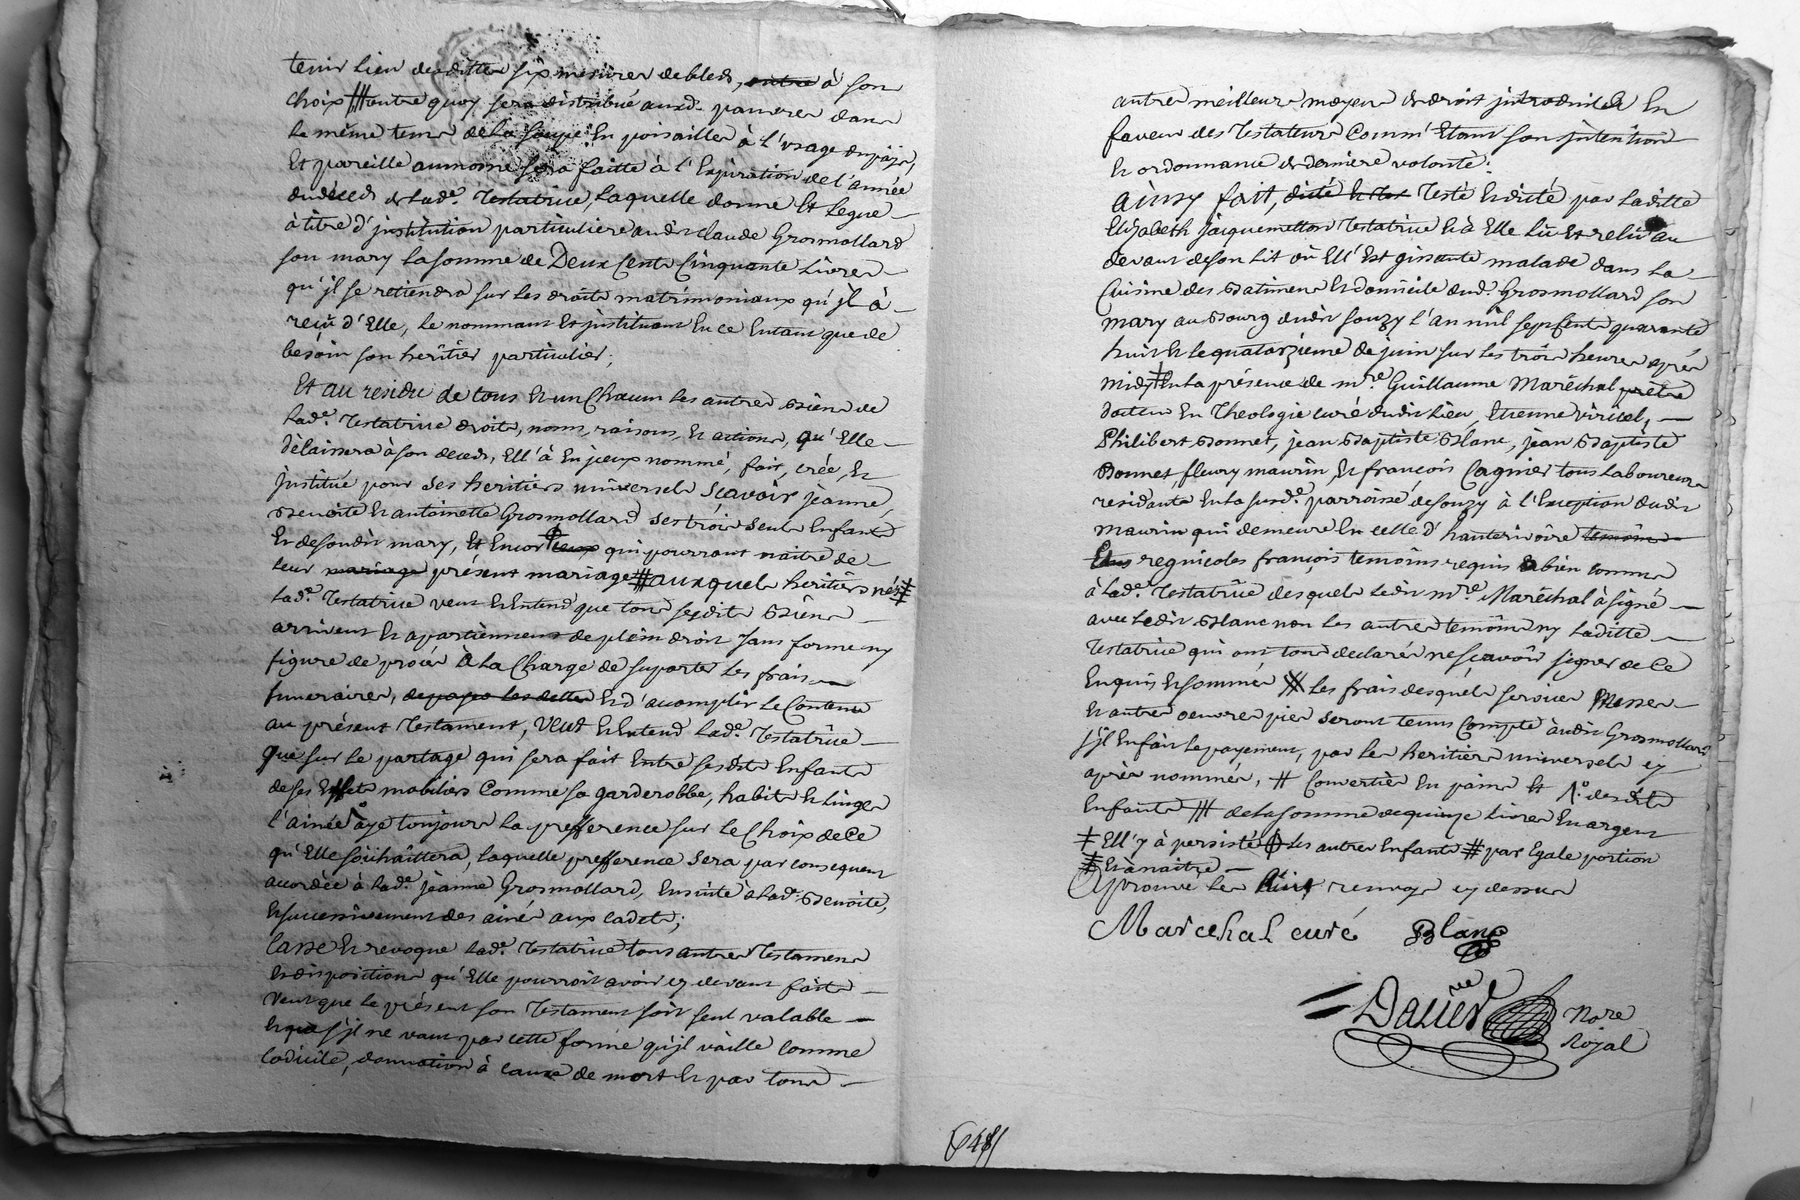 tenir lieu desdittes six mesures de bleds, outre à son
choix ⧻ outre quoy sera distribué auxd. pauvres dans
le même tems de la soupe en poisailles à l'usage du païs,
Et pareille aumone sera faitte à l'Expiration de l'année
du déceds de lad.e Testatrice, Laquelle donne et Legue
à titre d'institution particuliere audit claude Grosmollard
son mary la somme de Deux Cents Cinquante Livres
qu'jl se retiendra sur les droits matrimoniaux qu'jl à
reçû d'Elle, le nommant et jnstituant en ce Entant que de
besoin son heritier particulier;
Et au residu de tous et un Chacun les autres biens de
lad.e Testatrice droits, noms, raisons, et actions, qu'Elle
délaissera à son deceds, Ell'à En jceux nommé, fait, créé, et
jnstitué pour ses heritiers universels sçavoir jeanne,
benoite et antoinette Grosmollard ses trois seuls Enfants
et de sondit mary, et encor ceux qui pourront naitre de
leur mariage présent mariage ⧻ auxquels heritiers nés ‡
lad.e Testatrice veut et Entend que tous sesdits biens
arrivent et apartiennent de plein droit sans forme ny
figure de procès à la Charge de suporter les frais
funeraires, de payer les dettes et d'acomplir le Contenu
au présent Testament, Veut et Entend lad.e Testatrice
que sur le partage qui sera fait Entre sesdits Enfants
de ses Effets mobiliers Comme sa garderobbe, habits et linges
l'ainée aye toujours la prefference sur le Choix de Ce
qu'Elle souhaittera, laquelle prefference sera par consequent
acordée à lad.e jeanne Grosmollard, Ensuite à lad. benoite,
et successivement des ainés aux cadets;
Casse et revoque lad.e Testatrice tous autres Testamens
et dispositions qu'Elle pourroit avoir cy devant faits
Veut que le présent son Testament soit seul valable
et que s'jl ne vaut par cette forme qu'jl vaille comme
Codicile, donnation à cause de mort et par tous
autres meilleurs moyens de droit jntroduits En
faveur des Testateurs Comm'Etant son jntention
et ordonnance de derniere volonté:
ainsy fait, dicté et Testé et dicté par laditte
Elizabeth jacquemetton Testatrice et à Elle lû et relû au
devant de son lit où Ell'Est gisante malade dans la
Cuisine des batimens et domicile dud. Grosmollard son
mary au bourg dudit souzy l'an mil sept Cents quarante
huit et le quatorzieme de juin sur les trois heures après
midy ‡ en la présence de m.re Guillaume Maréchal prêtre
docteur En Theologie curé dudit lieu, Etienne viricel,
Philibert bonnet, jean baptiste blanc, jean baptiste
bonnet, fleury maurin, et françois Cagnier tous laboureurs
residants en la susd.e parroisse de souzy à l'Exception dudit
maurin qui demeure en celle d'hauterivoire temoins
tous regnicoles françois temoins requis et bien connus
à lad.e Testatrice desquels ledit m.re Maréchal à signé
avec ledit blanc non les autres temoins ny laditte
Testatrice qui ont tous declarés ne sçavoir signer de Ce
Enquis et sommés ⧻ les frais desquels services Messes
et autres oeuvres pies seront tenus Compte audit Grosmollard
s'jl En fait le payement, par les heritiers universels cy
après nommés, ⧺ Converties En pains et 1.° desdits
Enfants ⧻ de la somme de quinze Livres En argent
‡ Ell'y à persisté ϕ les autres Enfants ⧺ par Egale portion
‡ Et à naitre
aprouvé les huit renvoys cy dessus
Marechal curé Blanc
Davier
Nore
Royal